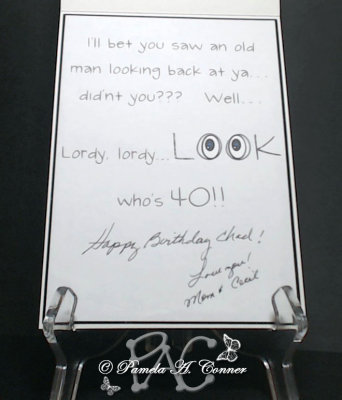 I'll bet you saw an old
man looking back at ya...
did'nt you??? Well...
Lordy, lordy...LOOK
who's 40!!
Happy Birthday Chad!
Love you!
Mom & Cecil
PAC
© Pamela A. Conner